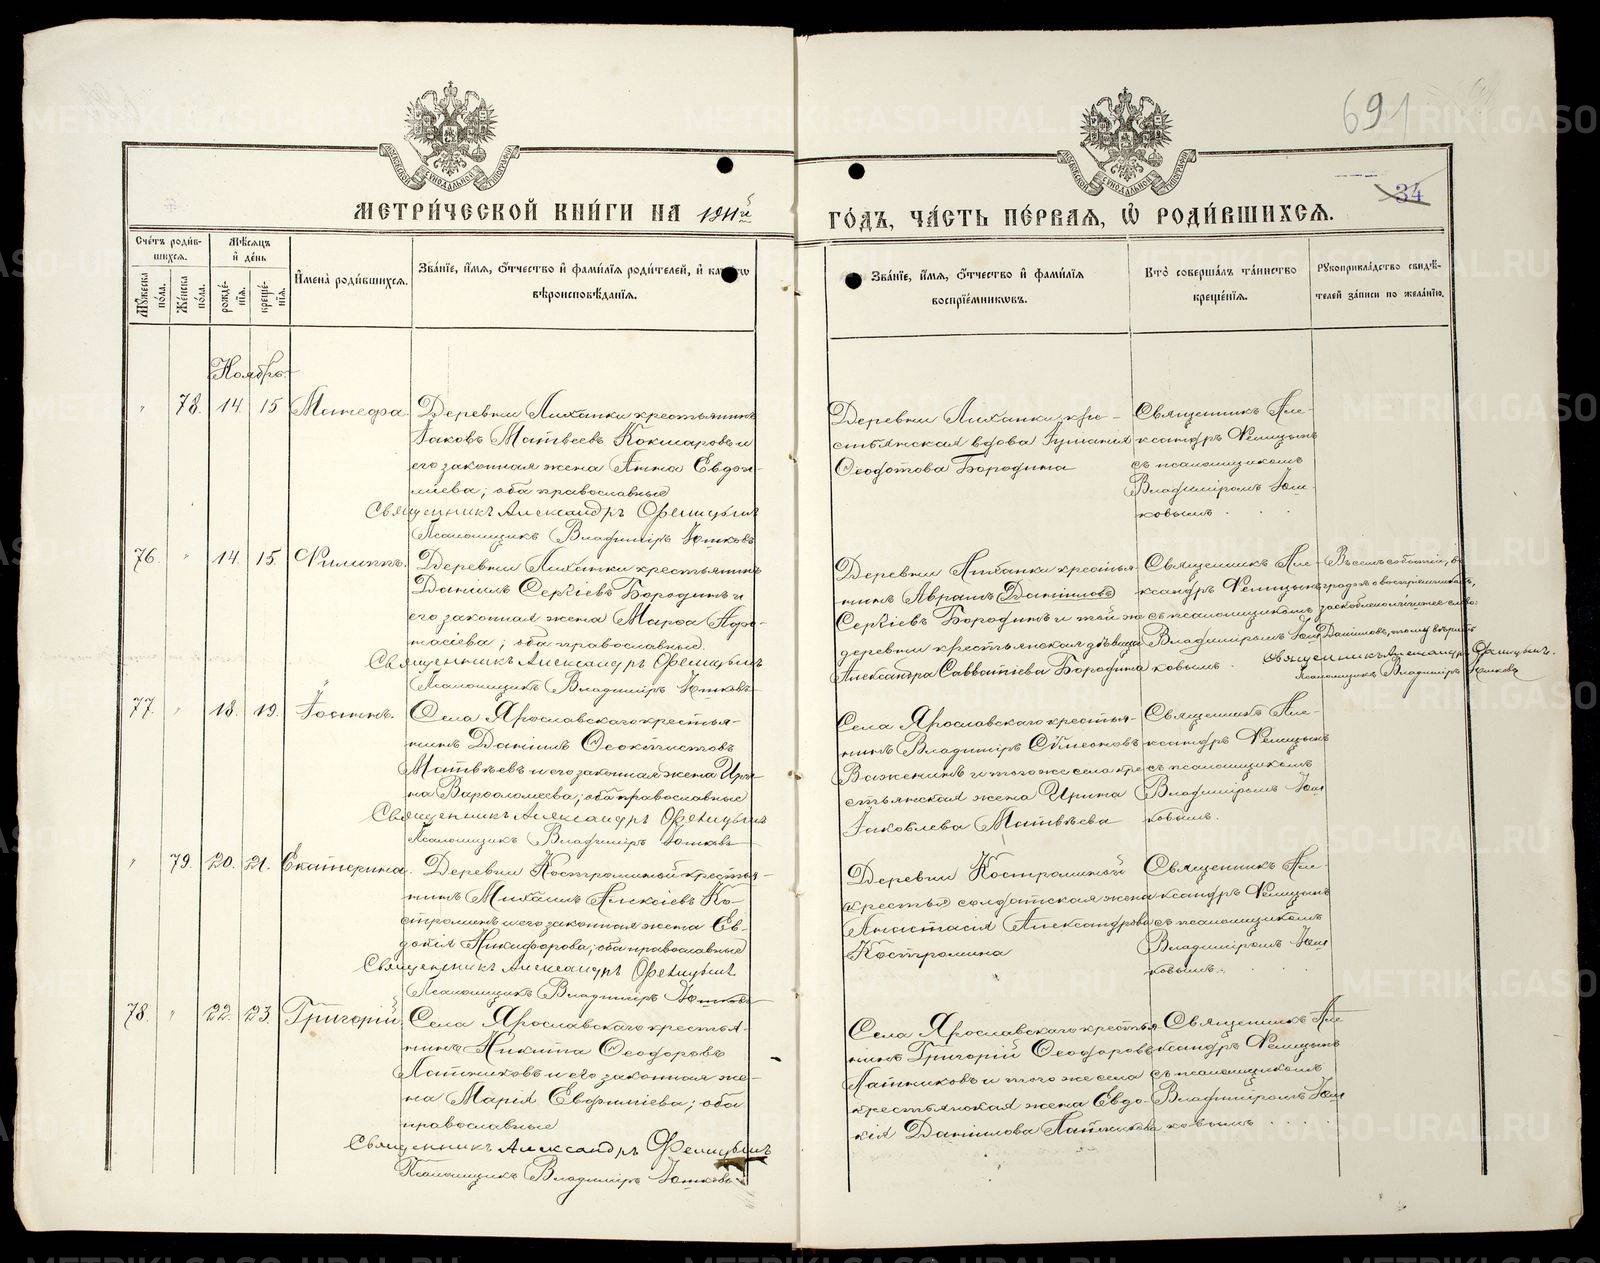 691
34
МЕТРИ́ЧЕСКОЙ КНИ́ГИ НА 1911й
ГО́ДЪ, ЧА́СТЬ ПЕ́РВАЯ, Ѡ҆ РОДИ́ВШИХСЯ.
Сче́тъ роди́вшихся.
Му́жеска по́ла.
Же́нска по́ла.
Мѣ́сяцъ и҆ де́нь
рожде́нїя.
креще́нїя.
И҆мена̀ роди́вшихся.
Зва́нїе, и҆́мя, ѻ҆́тчество и҆ фами́лїя роди́телей, и҆
вѣроисповѣ́данїя.
Зва́нїе, и҆́мя, ѻ҆́тчество и҆ фами́лїя
воспрїе́мниковъ.
Кто̀ соверша́лъ та́инство
креще́нїя.
Рꙋкоприкла́дство свидѣ́-
телей за́писи по жела́нїю.
Ноябрь
" 78. 14 15
Деревни Лиханки крестьянинъ
Іаковъ Матвѣевъ Кокшаровъ и
его законная жена Анна Евдок-
имова; оба православные
Священникъ Александръ Ѳелицынъ
Псаломщикъ Владиміръ Юшковъ
Деревни Лиханки кре-
стьянская вдова
Ѳеодотова Бородина
Священникъ Але-
ксандръ Ѳелицынъ
съ псаломщикомъ
Владиміромъ Юш-
ковымъ
76. " 14. 15. Филиппъ.
Деревни Лиханки крестьянинъ
Даніилъ Сергіевъ Бородинъ и
его законная жена Марѳа
; оба православные.
Священникъ Александръ Ѳелицынъ
Псаломщикъ Владиміръ Юшковъ
Деревни Лиханки крестья-
нинъ Авраамъ Даніиловъ
Сергіевъ Бородинъ и той же
деревни крестьянская дѣвица
Александра Савватіева Бородина
Священникъ Але-
ксандръ Ѳелицынъ
съ псаломщикомъ
Владиміромъ Юш-
ковымъ.
Въ сей статьѣ, въ
графѣ о воспріемникахъ,
слово:
Даніиловъ, тому вѣрить
Священникъ Александръ Ѳелицынъ.
Псаломщикъ Владиміръ Юшковъ
77. " 18. 19. Іоаннъ.
Села Ярославскаго крестья-
нинъ Даніилъ Ѳеоктистовъ
Матвѣевъ и его законная жена Ири-
на Варѳоломеева; оба православные
Священникъ Александръ Ѳелицынъ
Псаломщикъ Владиміръ Юшковъ
Села Ярославскаго крестья-
нинъ Владиміръ Сѵмеоновъ
Важенинъ и того же села кре-
стьянская жена Ирина
Іаковлева Матвѣева
Священникъ Але-
ксандръ Ѳелицынъ
съ псаломщикомъ
Владиміромъ Юш-
ковымъ.
" 79. 20. 21. Екатерина.
Деревни Костроминой крестья-
нинъ Михаилъ Алексіевъ Ко-
строминъ и его законная жена Ев-
докія Никифорова; оба православные
Священникъ Александръ Ѳелицынъ
Псаломщикъ Владиміръ Юшковъ
Деревни Костроминой
солдатская жена
Анастасія Александрова
Костромина
Священникъ Але-
ксандръ Ѳелицынъ
съ псаломщикомъ
Владиміромъ Юш-
ковымъ.
78. " 22. 23. Григорій.
Села Ярославскаго крестья-
нинъ Никита Ѳеодоровъ
Латниковъ и его законная же-
на Марія Евфиміева; оба
православные
Священникъ Александръ Ѳелицынъ
Псаломщикъ Владиміръ Юшковъ
Села Ярославскаго крестья-
нинъ Григорій Ѳеодоровъ
Латниковъ и того же села
крестьянская жена Евдо-
кія Даніилова Латникова
Священникъ Але-
ксандръ Ѳелицынъ
съ псаломщикомъ
Владиміромъ Юш-
ковымъ
METRIKI.GASO-URAL.RU